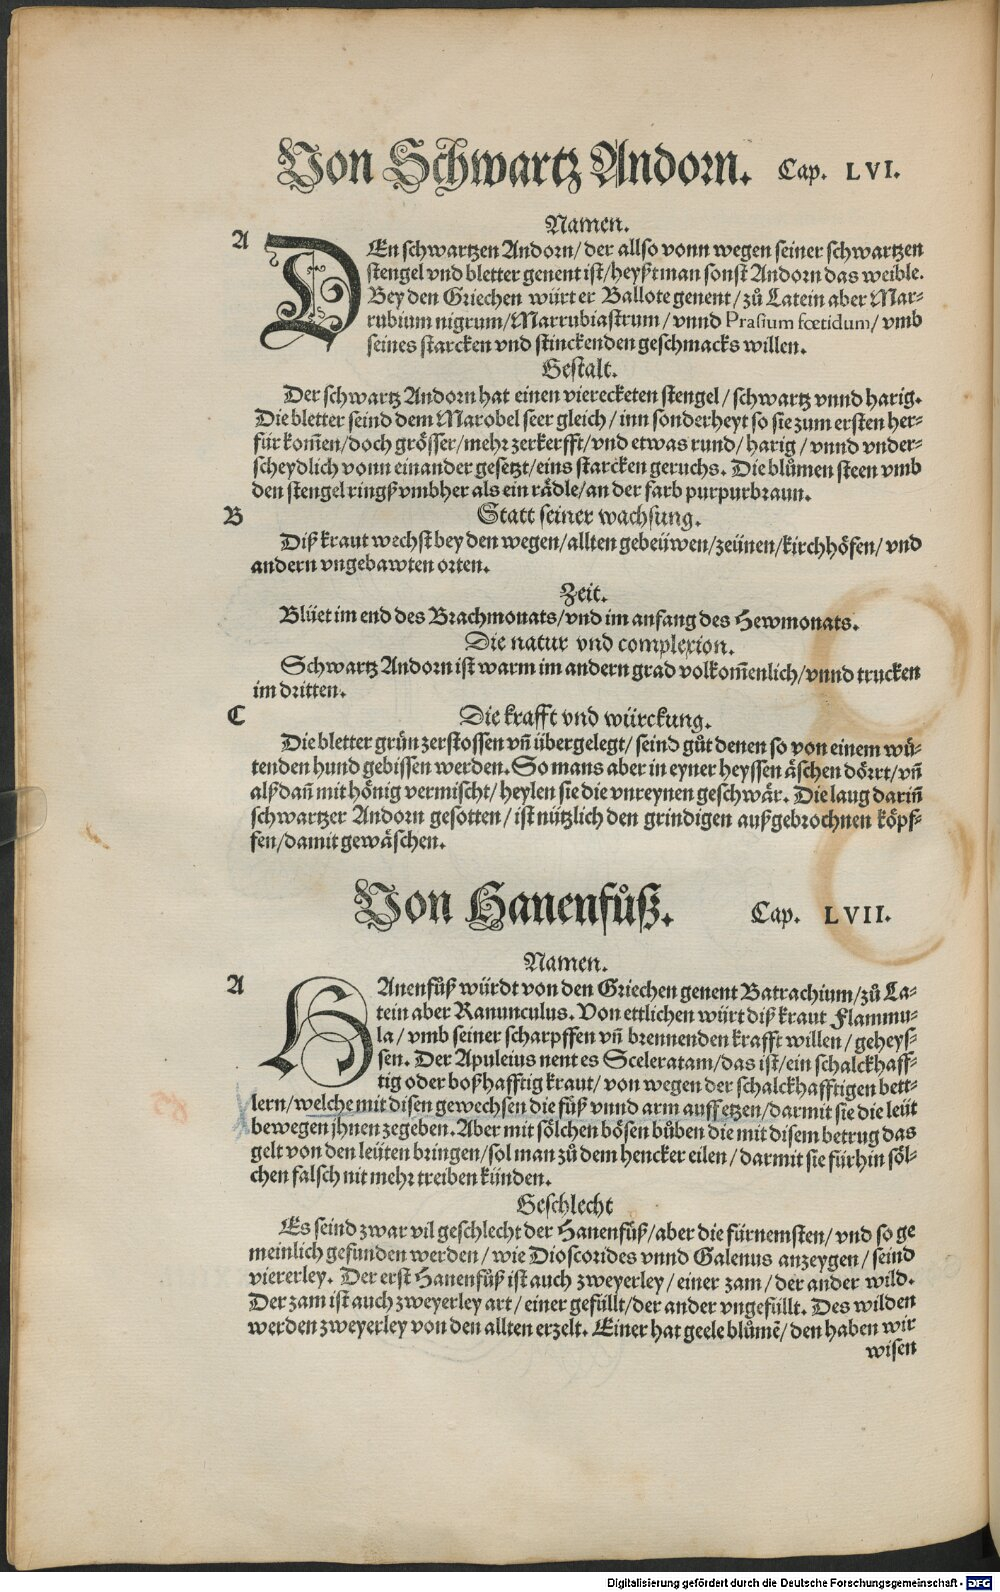 Von Schwartz Andorn. Cap. LVI.
Namen.
A
DEn schwartzen Andorn/ der allso vonn wegen seiner schwartzen
stengel vnd bletter genent ist/ heyßt man sonst Andorn das weible.
Bey den Griechen würt er Ballote genent/ zů Latein aber Mar-
rubium nigrum/ Marrubiastrum/ vnnd Prasium fœtidum/ vmb
seines starcken vnd stinckenden geschmacks willen.
Gestalt.
Der schwartz Andorn hat einen vierecketen stengel/ schwartz vnnd harig.
Die bletter seind dem Marobel seer gleich/ inn sonderheyt so sie zum ersten her-
für kom̄en/ doch grösser/ mehr zerkerfft/ vnd etwas rund/ harig/ vnnd vnder-
scheydlich vonn einander gesetzt/ eins starcken geruchs. Die blůmen steen vmb
den stengel ringß vmbher als ein rädle/ an der farb purpurbraun.
B
Statt seiner wachsung.
Diß kraut wechst bey den wegen/ allten gebeüwen/ zeünen/ kirchhöfen/ vnd
andern vngebawten orten.
Zeit.
Blüet im end des Brachmonats/ vnd im anfang des Hewmonats.
Die natur vnd complexion.
Schwartz Andorn ist warm im andern grad volkom̄enlich/ vnnd trucken
im dritten.
C
Die krafft vnd würckung.
Die bletter grün zerstossen vn̄ übergelegt/ seind gůt denen so von einem wü-
tenden hund gebissen werden. So mans aber in eyner heyssen äschen dörrt/ vn̄
alßdan̄ mit hönig vermischt/ heylen sie die vnreynen geschwär. Die laug darin̄
schwartzer Andorn gesotten/ ist nützlich den grindigen außgebrochnen köpf-
fen/ damit gewäschen.
Von Hanenfůß. Cap. LVII.
Namen.
A
HAnenfůß würdt von den Griechen genent Batrachium/ zů La-
tein aber Ranunculus. Von ettlichen würt diß kraut Flammu-
la/ vmb seiner scharpffen vn̄ brennenden krafft willen/ geheys-
sen. Der Apuleius nent es Sceleratam/ das ist/ ein schalckhaff-
tig oder boßhafftig kraut/ von wegen der schalckhafftigen bett-
lern/ welche mit disen gewechsen die füß vnnd arm auffetzen/ darmit sie die leüt
bewegen jhnen zegeben. Aber mit sölchen bösen bůben die mit disem betrug das
gelt von den leüten bringen/ sol man zů dem hencker eilen/ darmit sie fürhin söl-
chen falsch nit mehr treiben künden.
Geschlecht
Es seind zwar vil geschlecht der Hanenfüß/ aber die fürnemsten/ vnd so ge
meinlich gefunden werden/ wie Dioscorides vnnd Galenus anzeygen/ seind
viererley. Der erst Hanenfůß ist auch zweyerley/ einer zam/ der ander wild.
Der zam ist auch zweyerley art/ einer gefüllt/ der ander vngefüllt. Des wilden
werden zweyerley von den allten erzelt. Einer hat geele blůmē/ den haben wir
wisen
Digitalisierung gefördert durch die Deutsche Forschungsgemeinschaft - DFG